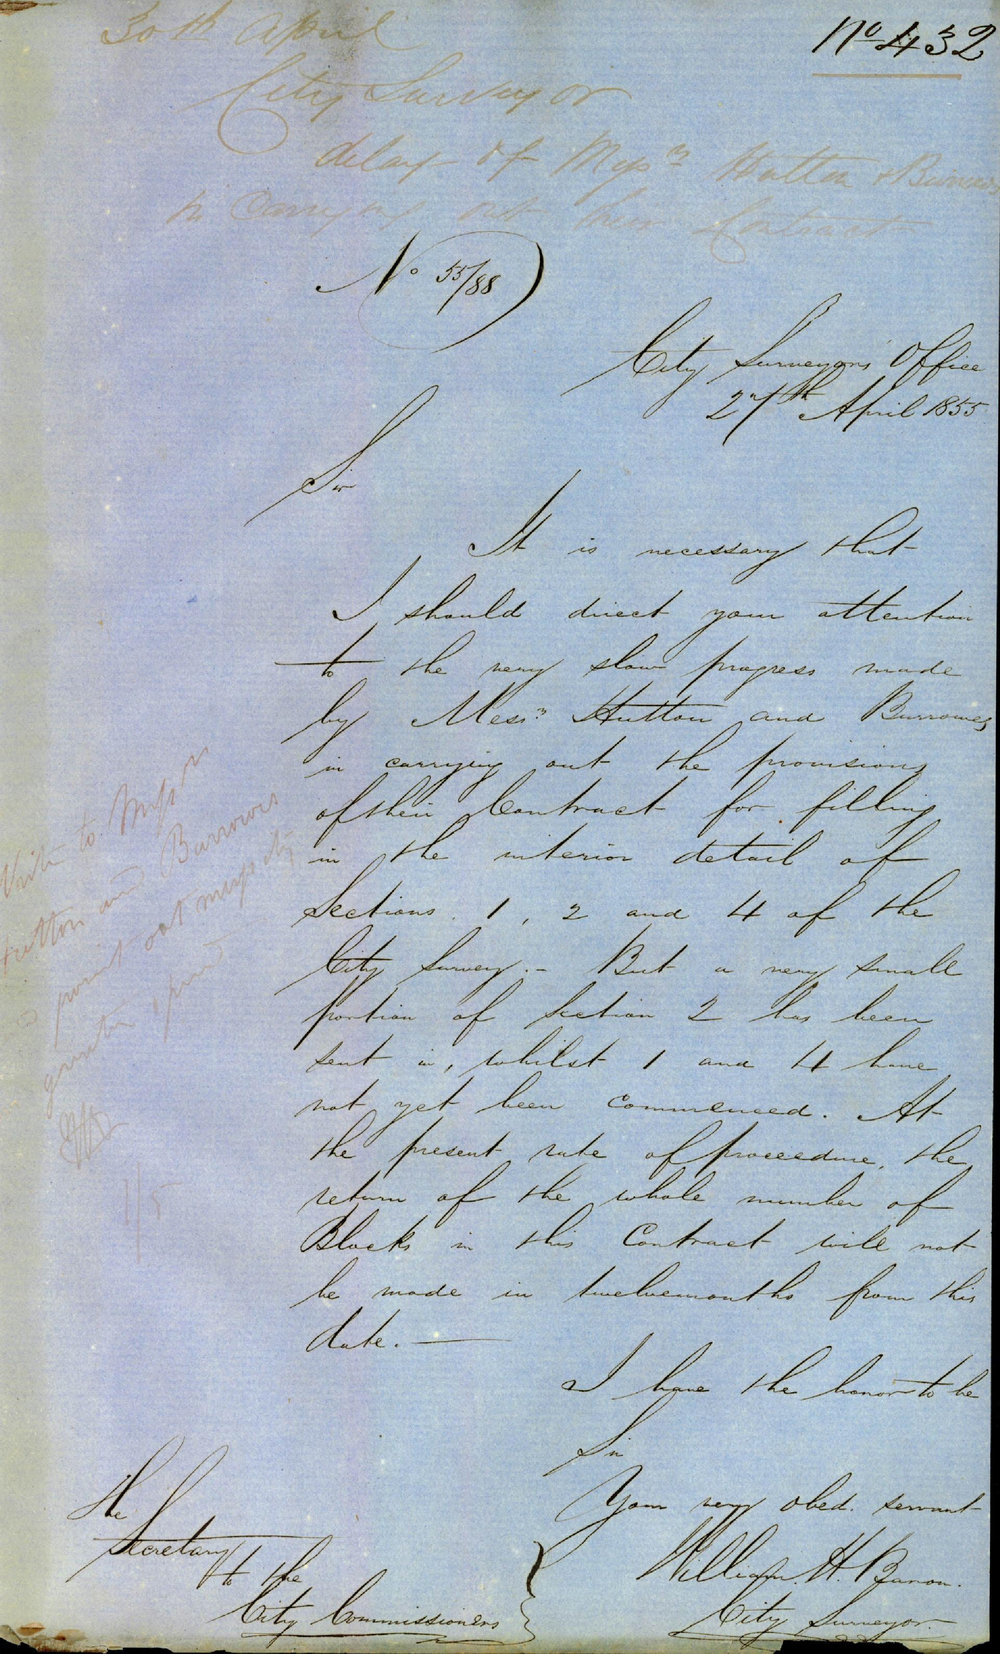 No 432
30th April
City Surveyor
delay of Messrs Hutton & Burrows
in carrying out their Contract
No 55/88
City Surveyors Office
27th April 1855
Sir
It is necessary that
I should direct your attention
to the very slow progress made
by Messrs Hutton and Burrowes
in carrying out the provisions
of their Contract for filling
in the interior detail of
Sections. 1, 2 and 4 of the
City Survey. - But a very small
portion of Section 2 has been
sent in, whilst 1 and 4 have
not yet been commenced. At
the present rate of proceedure, the
return of the whole number of
Blocks in this Contract will not
be made in twelvemonths from this
date. —
I have the honor to be
Sir
Your very obed. servant
William. H. Baron.
City Surveyor.
The
Secretary
to the
City Commissioners
Write to Messrs
Hutton and Burrowes
point out necessity
greater speed
1/5